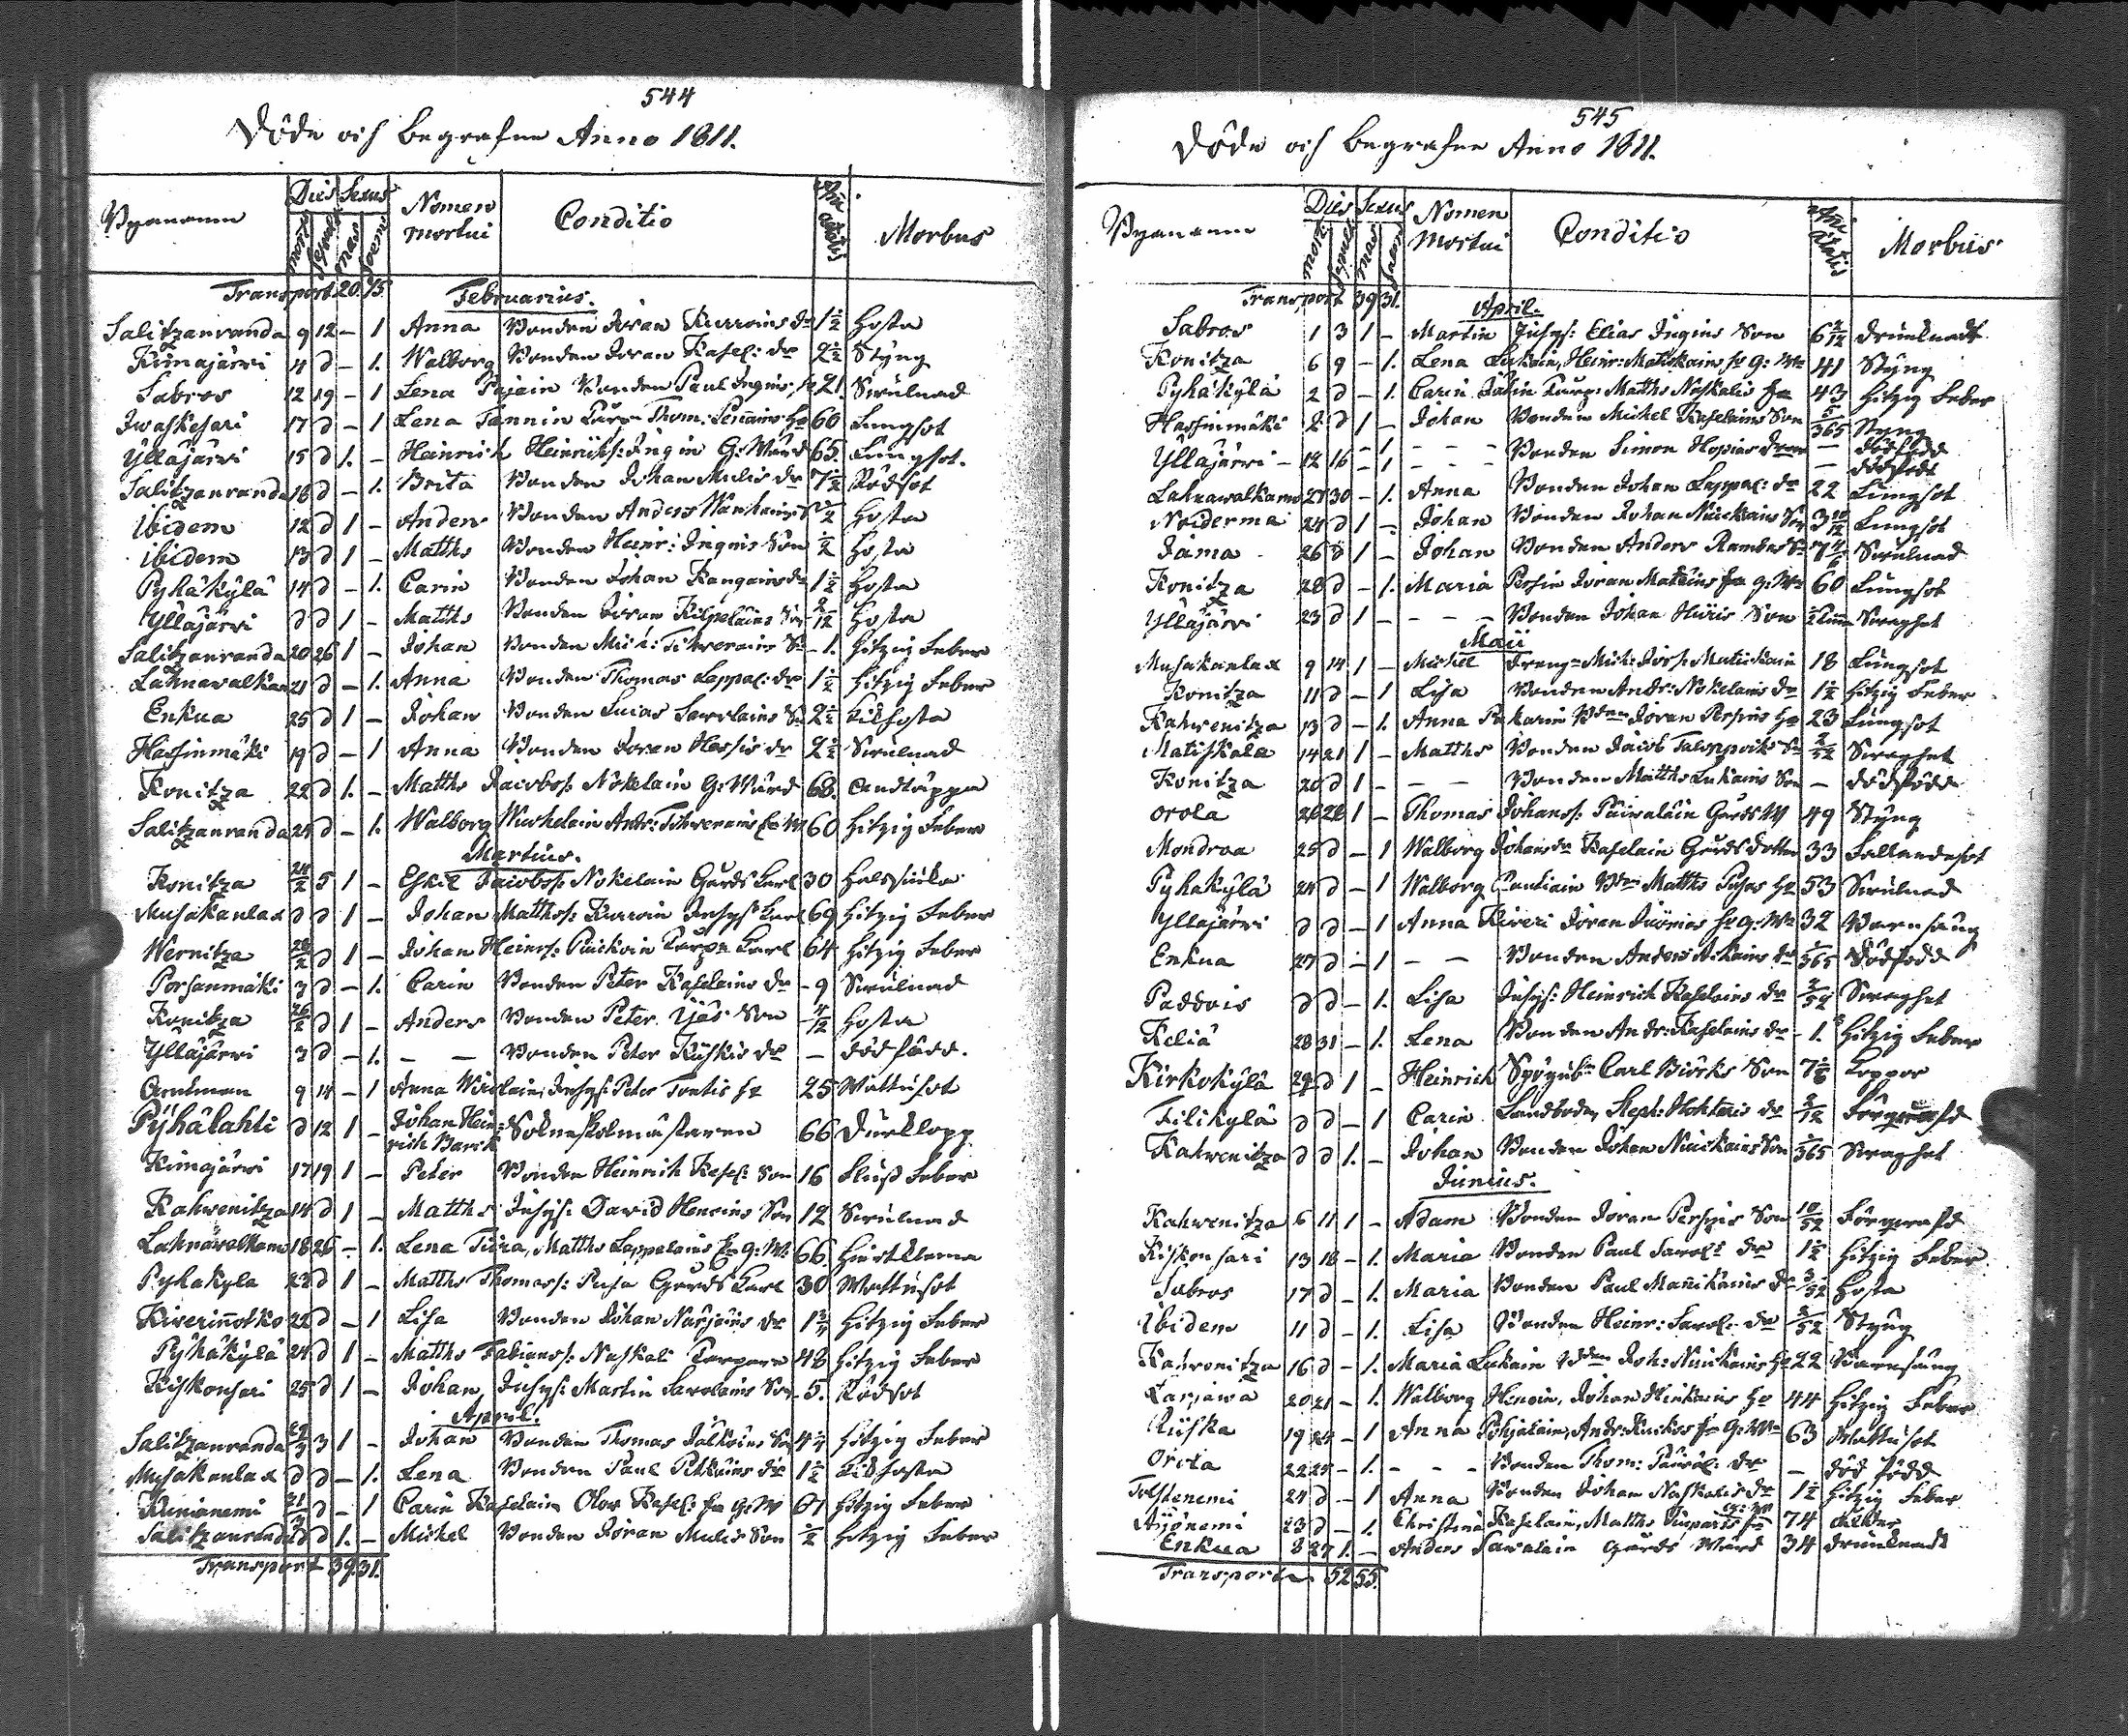 544
Döde och Begrafne Anno 1811.
Byanamn Dies Sexus Nomen mortui Conditio Ani ætatis Morbus
mort. sepult. mas foemi
Transport 20. 15
Februarius.
Salitzanranda 9 12 – 1 Anna Bonden Jöran Kurroins dr 1 1/2 Hosta
Kimajärvi 11 d – 1. Walborg Bonden Jöran Kasel: dr 2 1/2 Styng
Sabros 12 19 – 1 Lena Pajain Bonden Paul Ingins hu 21. Swulnad
Iwaskesari 17 d – 1 Lena Tannin Thom: hu 60 Lungsot
Ylläjärvi 15 d 1. – Heinrich Heinrichs: Ingin G: Wärd 65. Lungsot.
Salitzanranda 16 d – 1. Brita Bonden Johan Mulis dr 7 1/2 Rödsot
ibidem 12 d 1 – Anders Bonden Anders 1/2 Hosta
ibidem 13 d 1 – Matths Bonden Heinr: Ingins Son 1/2 Hosta
Pyhäkylä 14 d – 1. Carin Bonden Johan Kangains dr 1 1/2 Hosta
Ylläjärvi d d 1 – Matths Bonden Jöran Kilpeläins Son 2/12 Hosta
Salitzanranda 20 26 1 – Johan Bonden Mich: Tihverains Sn – 1. Hitzig Feber
Lahnawalkam 21 d – 1. Anna Bonden Thomas Lappal: dr 1 1/2 Hitzig Feber
Enkua 25 d 1 – Johan Bonden Lucas Savolains Sn 2 1/2 Kikhosta
Hassinmäki 19 d – 1 Anna Bonden Jöran Hassis dr 2 1/2 Swulnad
Konitza 22 d 1. – Matths Jacobss: Nokelain G: Wärd 68. Andtäppa
Salitzanranda 24 d – 1. Walborg Andr: Tihverains 60 Hitzig Feber
Martius.
Konitza 24/2 5 1 – Eskil Jacobss: Nokelain Gårds Karl 30 Halssiuka
Musakanlax d d 1 – Johan Mattss: Kurroin Inhys Karl 69 Hitzig Feber
Wernitza 28/2 d 1 – Johan Heinrs: Puickoin Karl 64 Hitzig Feber
Porsanmäki 3 d – 1. Carin Bonden Peter Kaselains dr – 9 Swulnad
Konitza 26/2 d 1 – Anders Bonden Peter Yjäs Son 4/12 Hosta
Ylläjärvi 3 d – 1. – – Bonden Peter Kyskis dr – dödfödd.
9 14 – 1 Anna Inhys: Peter Tontis hu 25 Wattusot
Pyhälahti d 12 1 – Johan Heinrich Barck Skolmästaren 66 Durklopp
Kimajärvi 17 19 1 – Peter Bonden Heinrich Kasel: Son 16 Fluss Feber
Kahwenitza 14 d 1 – Matths Inhys: David Henoins Son 12 Swulnad
Lahnawalkam 18 26 – 1. Lena Tiira, Matths Lappalains G: W: 66. Hiertklama
Pyhäkylä 23 d 1 – Matths Thomass: Pusa Gårds Karl 30 Wattusot
Kiverinotko 22 d – 1 Lisa Bonden Johan Narjains dr 1 3/4 Hitzig Feber
Pyhäkylä 24 d 1 – Matths Fabianss: Naskali 48 Hitzig Feber
Kiskonsari 25 d 1 – Johan Inhys: Martin Savolains Son – 5. Rödsot
April.
Salitzanranda 29/3 3 1 – Johan Bonden Thomas Jälköins Son 4 1/4 Hitzig Feber
Musakanlax d d – 1. Lena Bonden Paul Pitkäins dr 1 1/2 Kikhosta
Kunianemi 31/3 d – 1 Carin Kaselain Olov Kasel: G: W 61 Hitzig Feber
Salitzanranda d d 1. – Michel Bonden Jöran Mulis Son 1/2 Hitzig Feber
Transport 39. 31.
545
Döde och Begrafne Anno 1811.
Byanamn Dies Sexus Nomen Mortui Conditio Ani ætatis Morbus
mort. sepult mas faem
Transport 39 31.
April.
Sabros 1 3 1 – Martin Inhys: Elias Ingins Son 6 2/12 Drunknadt
Konitza 6 9 – 1. Lena Lukain, Heinr: Matiskain hu G: Wds 41 Styng
Pyhäkylä 2 d – 1. Carin Matths Naskalis 43 Hitzig Feber
Hassinmäki 2 d 1 – Johan Bonden Michel Kaselains Son 5/365 Styng
Ylläjärvi – 12 16 – 1 – – – Bonden Simon – dödfödd
– 1 – – – – dödfödt
Lahnawalkam 27 30 – 1. Anna Bonden Johan Lappal: dr 22 Lungsot
Noiderma 24 d 1 – Johan Bonden Johan Nuickains Son 3 10/12 Lungsot
Jama 26 d 1 – Johan Bonden Anders Sn 7 Swulnad
Konitza 28 d – 1. Maria Persin Jöran G: Wds 60 Lungsot
Ylläjärvi 23 d 1 – – – – Bonden Johan Huiris Son Swaghet
Maii
Musakanlax 9 14 1 – Michel Mich: 18 Lungsot
Konitza 11 d – 1 Lisa Bonden Andr: Nokelains dr 1 1/2 Hitzig Feber
Kahwenitza 13 d – 1. Anna Pukarin Jöran Persins hu 23 Lungsot
Matiskala 14 21 1 – Matths Bonden Jacob Sn 2/52 Swaghet
Konitza 20 d 1 – – – Bonden Matths Lukains Son – dödfödd
Orola 26 28 1 – Thomas Johanss: Päiwaläin Gårds W 49 Styng
Mondroa 25 d – 1 Walborg Johansdr Kaselain Gårds Dotter 33 Fallandesot
Pyhäkylä 24 d – 1 Walborg Matths Pusas hu 53 Swulnad
Ylläjärvi d d – 1 Anna Kiveri Jöran hu G: Wds 32 Barnsäng
Enkua 27 d – 1 – – Bonden Anders dr 1/365 Dödfödd
Paddois d d – 1. Lisa Inhys: Heinrich Kaselains dr 2/52 Swaghet
Kelia 28 31 – 1. Lena Bonden Andr: Kaselains dr – 1. Hitzig Feber
Kirkokylä 29 d 1 – Heinrich Carl Biörks Son 7 Koppor
Filikylä d d – 1 Carin Landboden Steph: Hohteris dr 2/12 Förqwafd
Kahwenitza d d 1. – Johan Bonden Johan Nuickains Son 1/365 Swaghet
Junius.
Kahwenitza 6 11 1 – Adam Bonden Jöran Persins Son 10/52 Förqwafd
Kiskonsari 13 18 – 1. Maria Bonden Paul Savol: dr 1 1/2 Hitzig Feber
Sabros 17 d – 1. Maria Bonden Paul Mannikains dr 3/52 Hosta
ibidem 11 d – 1. Lisa Bonden Heinr: Savol: dr 2/52 Styng
Kahwenitza 16 d – 1. Maria Lukain Joh: Nuickains hu 22 Barnsäng
Larjawa 20 21 – 1. Walborg Henoin, Johan Hinkains hu 44 Hitzig Feber
Riiska 19 24 – 1 Anna Pohjalain, Andr: Ruckos G: Wds 63 Wattusot
Orola 22 25 – 1. – – – Bonden Thom: Päiväl: dr – död född
24 d – 1 Anna Bonden Johan Naskalis dr 1 1/2 Hitzig Feber
Äyjönemi 23 d – 1. Christina Kaselain, Matths 74 Ålder
Enkua 8 27 1. – Anders Savalain Gårds Wärd 34 Drunknadt
Transport 52 55.